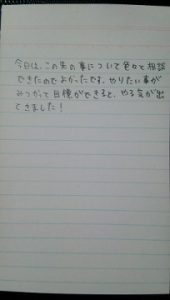 今日は、この先の事について色々と相談
できたのでよかったです。やりたい事が
みつかって目標ができると、やる気が出
てきました！